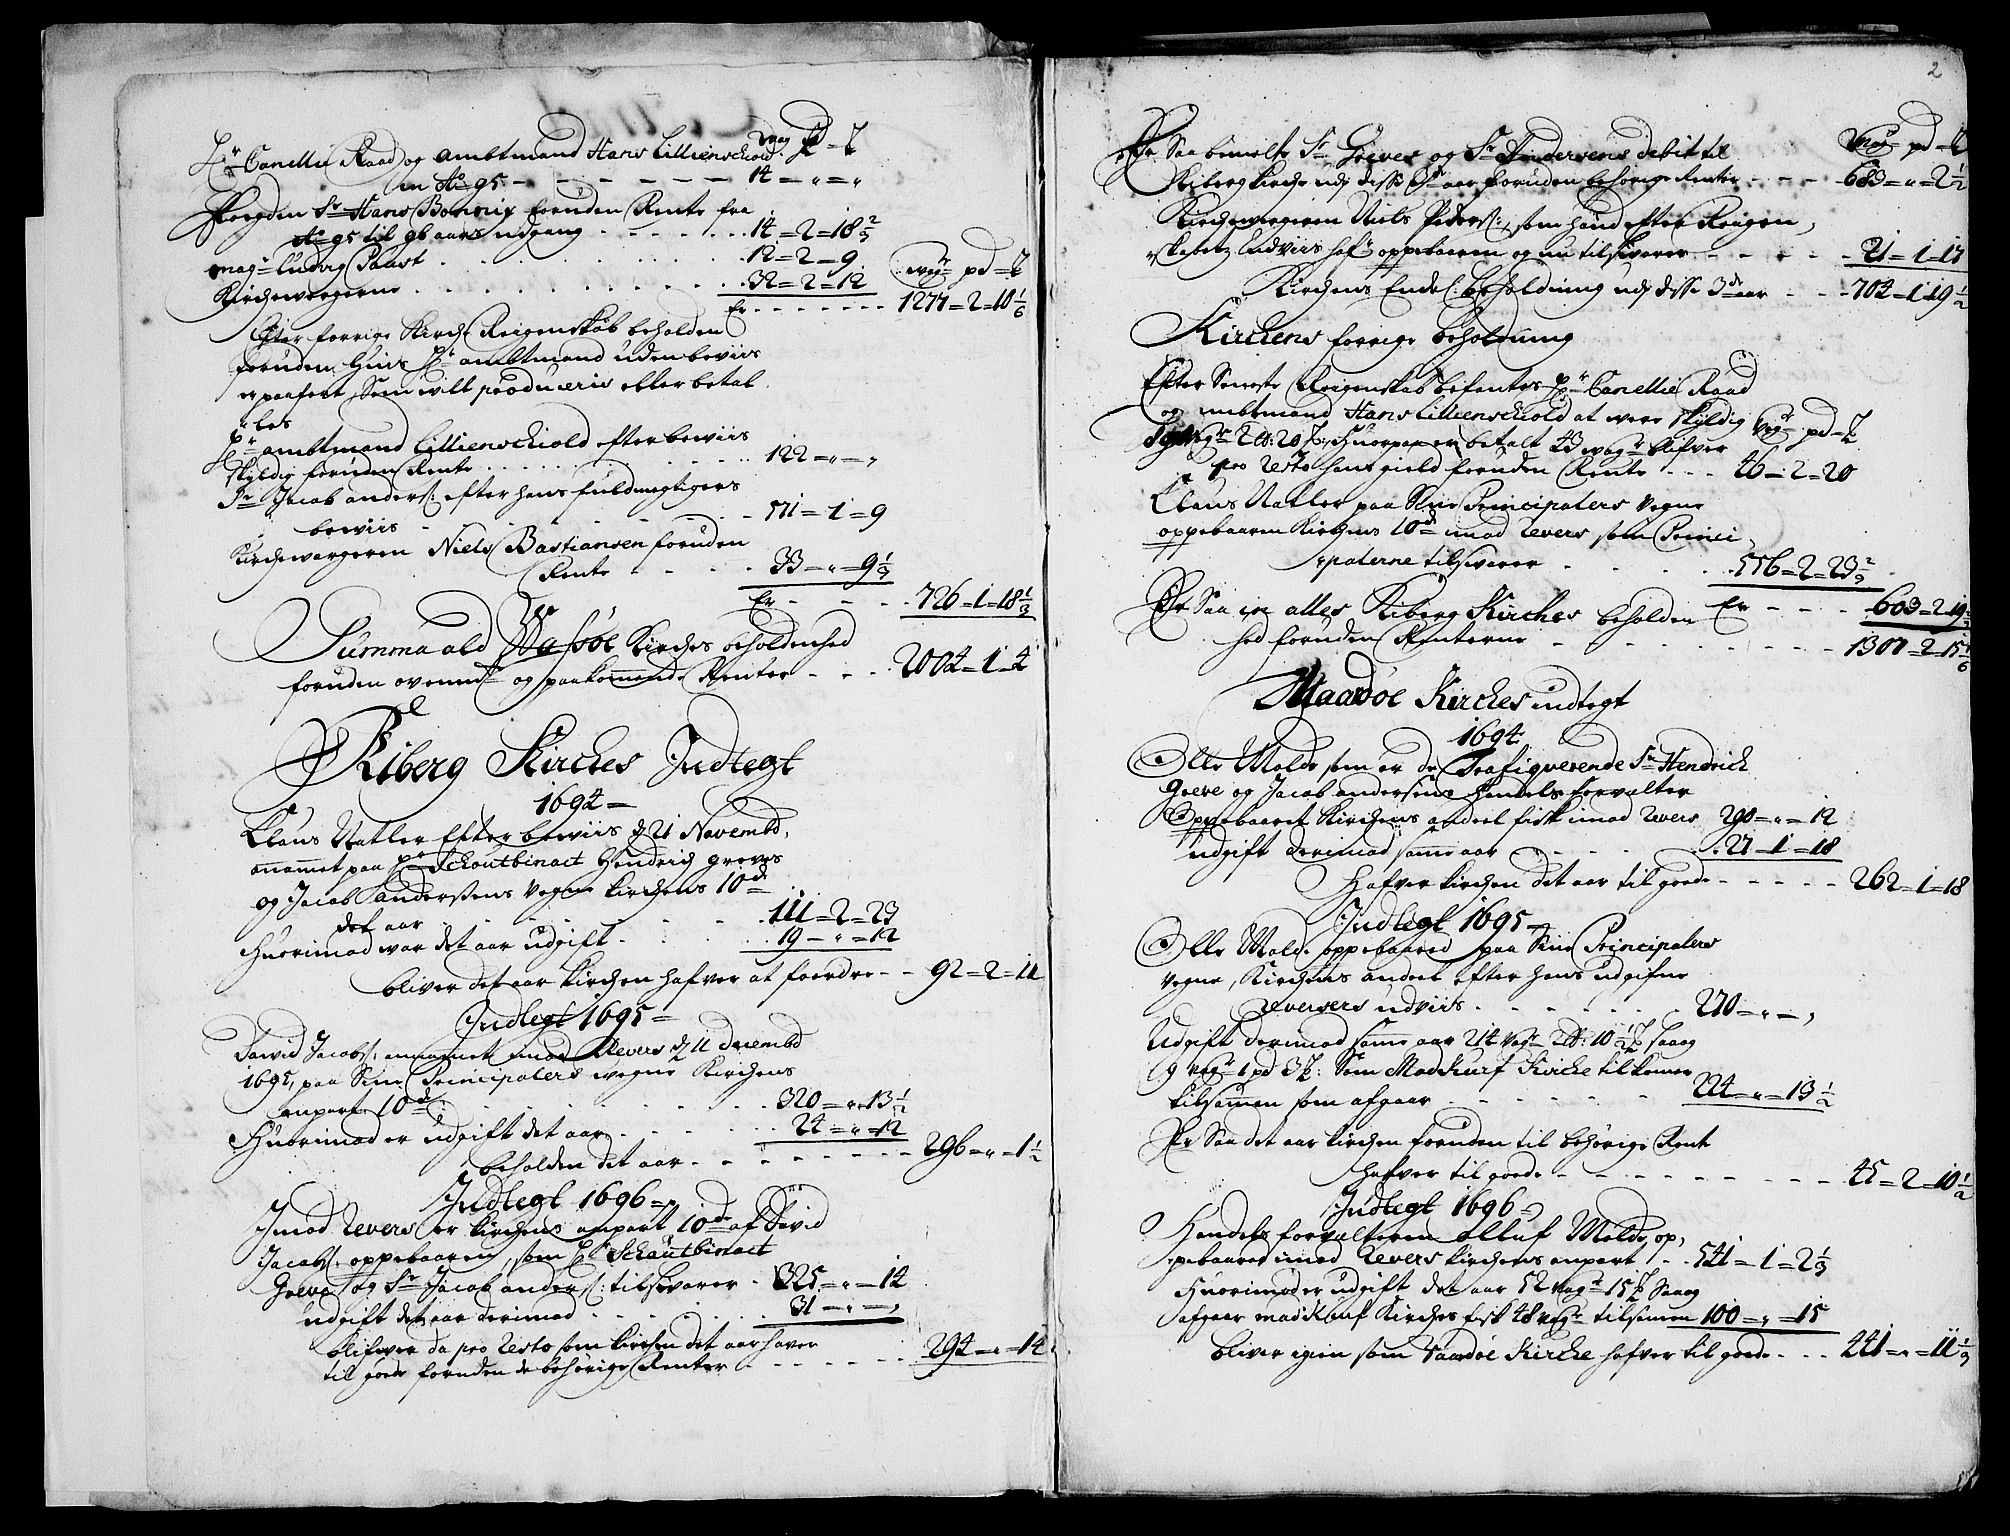 Hr Cancellie Raad og Ambtmand Hans Lillienschiold
wog pd ℔
in Ao 95 - - - - - 14 = " = "
Fogden Sr Hans Bonnix foruden Rente fra
Ao 95 til 96 aars udgang . . . . 14 = 2 = 18 2/3
Mag. Ludvig Paust . . . . 12 = 2 = 9
Kirchewergerne . . . . 32 = 2 = 12
wog pd ℔
Er . . . . 1277 = 2 = 10 1/6
Efter forrige Kirche Reigenskab beholden
foruden huis Hr Ambtmand uden beviis
er paaført, Som vilt produceris eller betal
les
Hr Ambtmand Lillienschiold efter beviis
skyldig foruden Rente . . . . 122 = " = "
Sr Jacob Anders: efter hans fuldmegtigers
beviis - - - - 571 = 1 = 9
Kirchewergeren Niels Bastiansen foruden
Rente - - - - 33 = " = 9 1/3
Er - - - 726 = 1 = 18 1/3
Summa ald Wadsøe Kirches beholdenhed
foruden ovenmte og paakommende Renter - - 2004 = 1 = 4
Kiberg Kirches Indtegt
1694 =
Claus Natler Efter beviis d 21 Novembr
anammet paa Hr Schoutbinact Hendrich Greves
og Jacob Anderssens Vegne Kirchens 10de
det aar - - - - 111 = 2 = 23
Huorimod war det aar udgift . . . . 19 = " = 12
bliver det aar Kirchen hafver at foerdre - - 92 = 2 = 11
Indtegt 1695 =
David Jacobs: anammet imod Revers d 11 decembr
1695, paa Sine Principalers wegne Kirchens
anpart 10de . . . . 320 = " = 13 1/2
Huorimod er udgift det aar . . . . 24 = " = 12
beholden det aar . . . . 296 = " = 1 1/2
Indtegt 1696 =
Imod Revers er Kirchens anpart 10de af David
Jacobs: oppebaaren, som Hr Schautbinact
Greve og Sr Jacob Anders: tilsvarer - 325 = " = 14
udgift det aar derimod . . . . 31 = " = "
blifver da pro Resto som Kirchen det aar haver
til goede foruden de behørige Renter - - - 294 = " = 14
2
Er Saa bemelte Sr Greves og Sr Andersens debit til
wog pd ℔
Kiberg Kirche udj disse 3de aar foruden behørige Renter - - - 683 = " = 2 1/2
Kirchewergeren Niels Peders:, som hand efter Reigen,
skabetz Indviis hafr oppebaaren og nu tilsvarer - - - 21 = 1 = 17
Kirchens Endel: beholdning udj disse 3de aar - - 704 = 1 = 19 1/2
Kirchens forrige beholdning
Efter Seneste Reigenskab befantes Hr Cancellie Raad
og Ambtmand Hans Lillienschiold at were skyldig
wog pd ℔
89 wogr 2 ℔: 20 ℔: Huorpaa er betalt 43 wogr blifver
pro Resto hans gield foruden Rente - - - 46 = 2 = 20
Claus Natler paa Sine Principalers Vegne
oppebaaren Kirchens 10de imod Revers som Princi
palerne tilsvarer - - - - 556 = 2 = 23 2/3
Er Saa in alles Kiberg Kirches beholden
Er - - - 603 = 2 = 19 2/3
hed foruden Renterne - - - - 1307 = 2 = 15 1/6
Waardøe Kirches indtegt
1694
Olle Molde som er de Trafiqverende Sr Hendrich
Greve og Jacob Andersens Handels Forvalter
Oppebaaret Kirchens andeel fisk imod Revers 290 = " = 12
udgift derimod samme aar - - - - 27 = 1 = 18
Hafver Kirchen det aar til goede - - - - 262 = 1 = 18
Indtegt 1695 =
Olle Molde oppebaared paa Sine Principalers
vegne, Kirchens andeel efter hans udgifne
Reversers udviis . . . . 270 = " = "
Udgift derimod samme aar 214 wogr 2 ℔: 10 1/2 ℔ saaog
9 wogr 1 pd 3 ℔: Som Madkurf Kirche tilkomer
tilsammen som afgaar - - - - 224 = " = 13 1/2
Er Saa det aar Kirchen foruden til behørige Rent
hafver til goede - - - - 45 = 2 = 10 1/2
Indtegt 1696 =
Handels forvalteren Olluf Molde op,
pebaaret imod Revers Kirchens anpart - - 541 = 1 = 2 1/3
Huorimod er udgift det aar 52 wogr 15 ℔ Saaog
afgaar madKurf Kirches fisk 48 wogr tilsamen 100 = " = 15
bliver igien som Vaardøe Kirche hafver til goede - - - 441 = " = 11 1/3